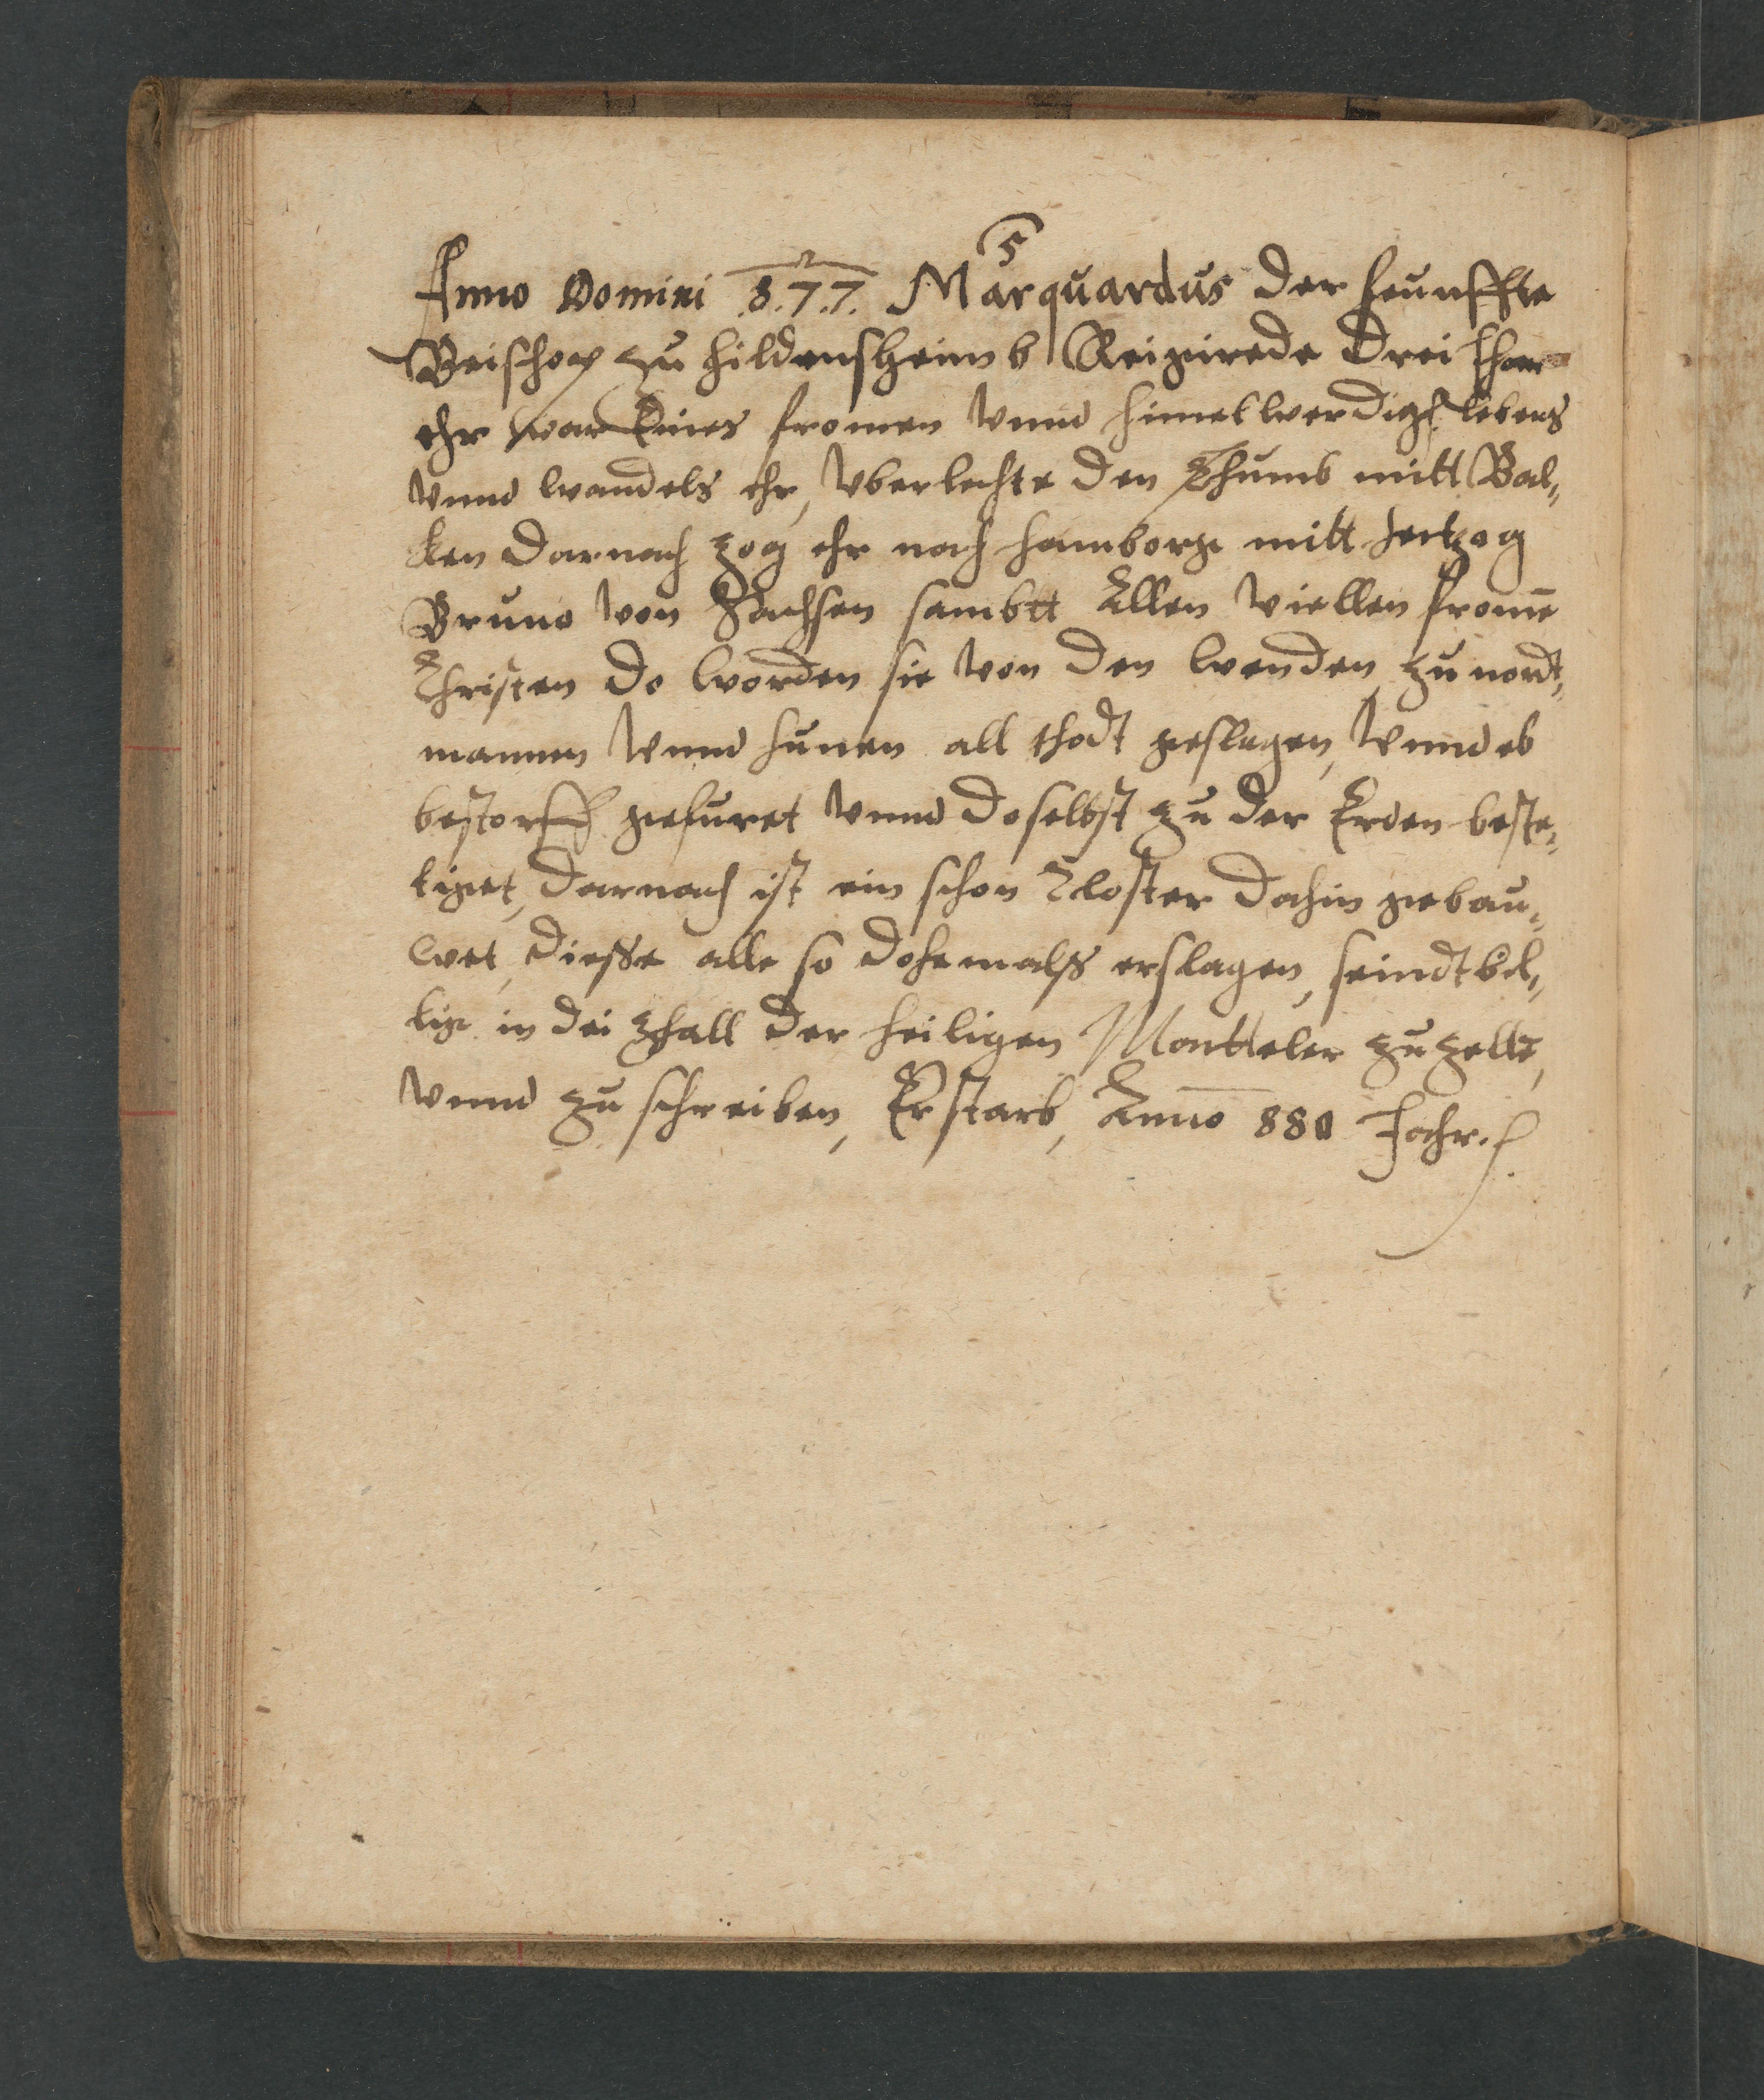 5
Anno Domini .8.77. Marquardus der feunffte
Beischop zu Hildensheimb Reigirede drei Jhar
ehr war Eines fromen vnnd himelwerdigs lebens
vnnd wandels ehr, vberlechte den Thumb mitt Bal„
ken darnach zog ehr nach Hamborge mitt hertzog
Bruno von Sachsen sambtt Allen viellen frome
Christen do worden sie von den wenden zu nordt„
mannen vnnd hunen all thodt geslagen, vnnd eb
bestorff gefuret vnnd doselbst zu der Erden beste„
tiget, darnach ist ein schon Closter dahin gebau„
wet, diesse alle so dohemalss erslagen, seindt bil„
lig in dei zhall der heiligen Martteler zu zelle,
vnnd zu schreiben, Er starb, Anno 880 Jahr.